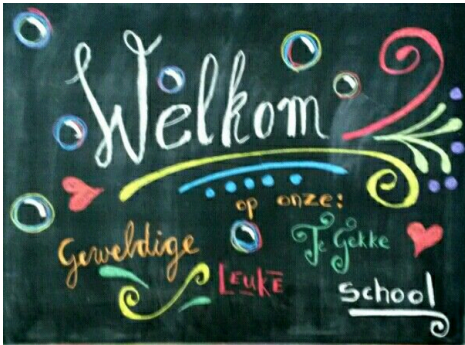 Welkom
op onze:
Geweldige
Te Gekke
Leuke
School